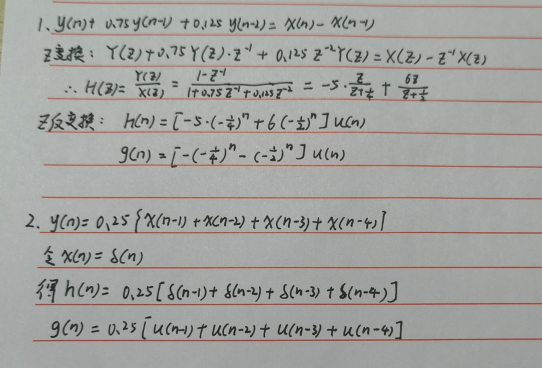 1. y(n)+ 0.75y(n-1) +0.125 y(n-2)= x(n)- x(n-1)
Z变换: Y(Z)+0.75 Y(Z)·Z⁻¹ + 0.125 Z⁻²Y(Z)= X(Z)- Z⁻¹X(Z)
∴ H(Z)= Y(Z)/X(Z) = 1-Z⁻¹/1+0.75Z⁻¹+0.125Z⁻² = -5·Z/Z+¼ + 6Z/Z+½
Z反变换: h(n)= [-5·(-¼)ⁿ +6(-½)ⁿ]u(n)
g(n)= [-(-¼)ⁿ- (-½)ⁿ] u(n)
2. y(n)= 0.25[x(n-1)+x(n-2)+x(n-3)+x(n-4)]
令 x(n)= δ(n)
得 h(n)= 0.25[δ(n-1)+ δ(n-2) + δ(n-3) + δ(n-4)]
g(n)= 0.25[u(n-1)+u(n-2)+u(n-3)+u(n-4)]